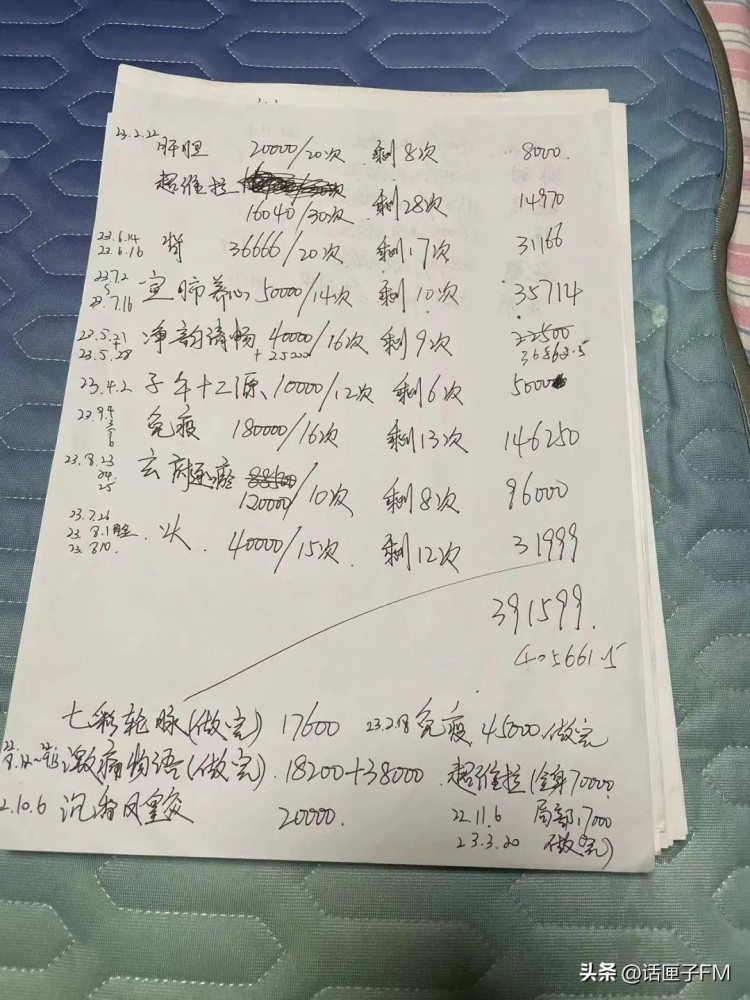 23.2.22 肝胆 20000/20次 剩8次 8000.
超维拉
16040/30次 剩28次 14970
23.6.14
23.6.16 肾 36666/20次 剩17次 31166
23.7.2
23.7.16 宣肺养心 50000/14次 剩10次 35714
23.5.21
23.5.28 净韵清畅 40000/16次 剩9次 22500
+25000 36562.5
23.4.2 子午十二源 10000/12次 剩6次 5000
23.9.4
5
6 免疫 180000/16次 剩13次 146250
23.8.23
24
25 玄府通瘀 88500
120000/10次 剩8次 96000
23.7.26
23.8.1
23.8.10. 火 40000/15次 剩12次 31999
391599.
405661.5
七彩轮脉(做完) 17600 23.2.18 免疫 45000 做完
激病物语(做完). 18200+38000 超维拉(全身70000
22.10.6 沉香 20000. 22.11.6 局部17000
23.3.20 做完)
头条 @话匣子FM